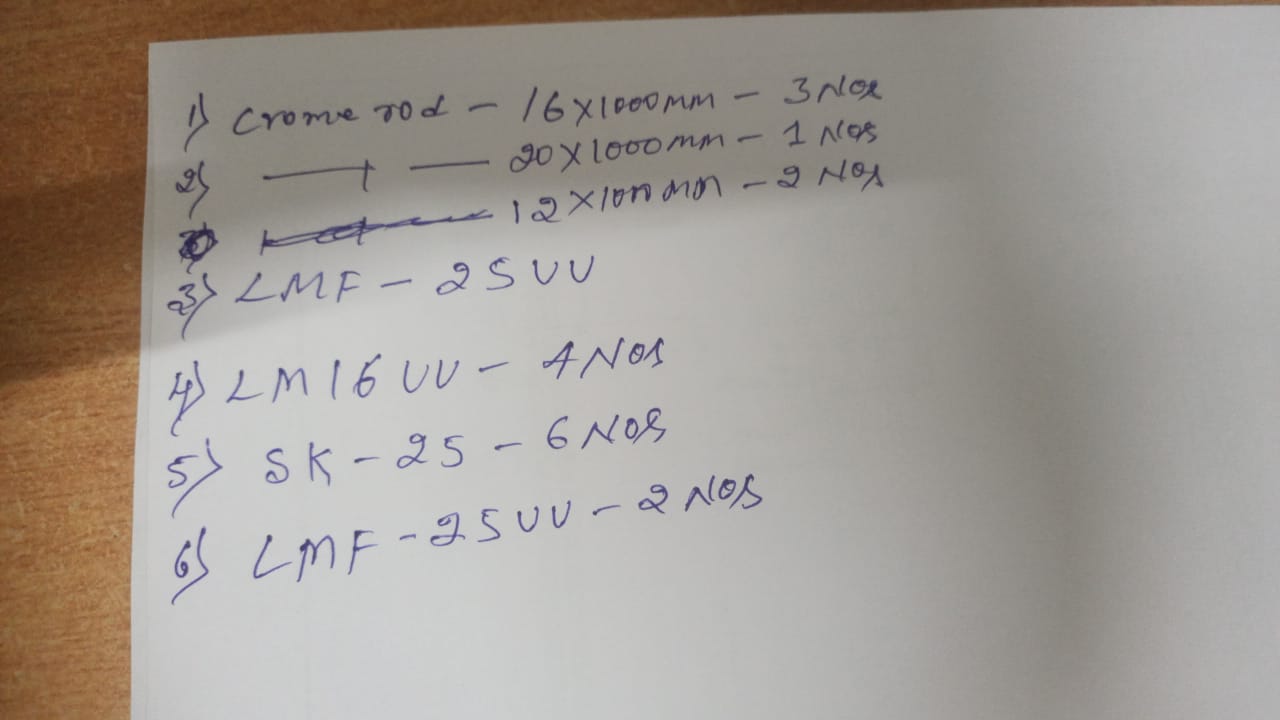 1) Crome rod - 16X1000mm - 3 Nos
2) —|— — 20X1000mm - 1 Nos
12X1000mm - 2 Nos
3) LMF - 25UU
4) LM16UU - 4 Nos
5) SK - 25 - 6 Nos
6) LMF - 25UU - 2 Nos